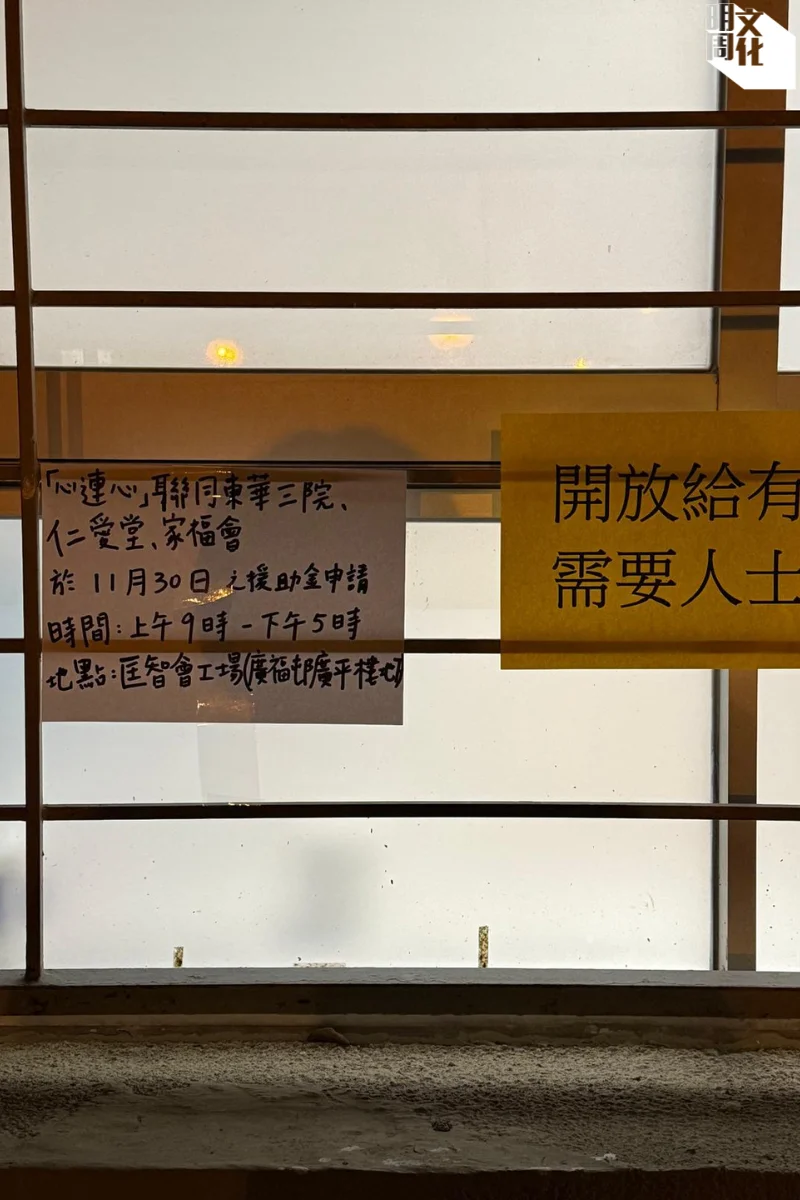 明周文化
「心連心」聯同東華三院、
仁愛堂、家福會
於 11月30日之援助金申請
時間:上午9時-下午5時
地點:匡智會工場(廣福邨廣平樓地下
開放給有
需要人士